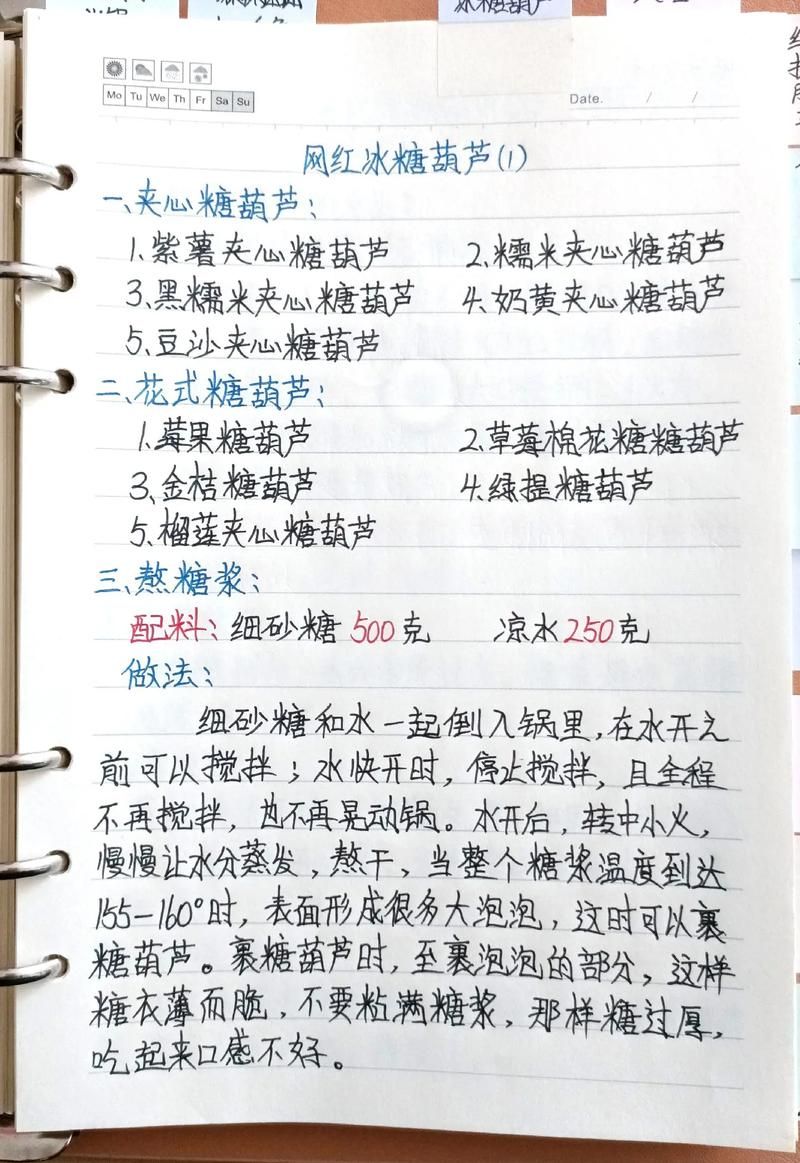 冰糖葫芦
Mo Tu We Th Fr Sa Su
Date. / /
网红冰糖葫芦(1)
一、夹心糖葫芦:
1.紫薯夹心糖葫芦 2.糯米夹心糖葫芦
3.黑糯米夹心糖葫芦 4.奶黄夹心糖葫芦
5.豆沙夹心糖葫芦
二、花式糖葫芦:
1.莓果糖葫芦 2.草莓棉花糖糖葫芦
3.金桔糖葫芦 4.绿提糖葫芦
5.榴莲夹心糖葫芦
三、熬糖浆:
配料:细砂糖500克 凉水250克
做法:
细砂糖和水一起倒入锅里,在水开之
前可以搅拌;水快开时,停止搅拌,且全程
不再搅拌,也不再晃动锅。水开后,转中小火,
慢慢让水分蒸发,熬干,当整个糖浆温度到达
155-160°时,表面形成很多大泡泡,这时可以裹
糖葫芦。裹糖葫芦时,至裹泡泡的部分,这样
糖衣薄而脆,不要粘满糖浆,那样糖过厚,
吃起来口感不好。